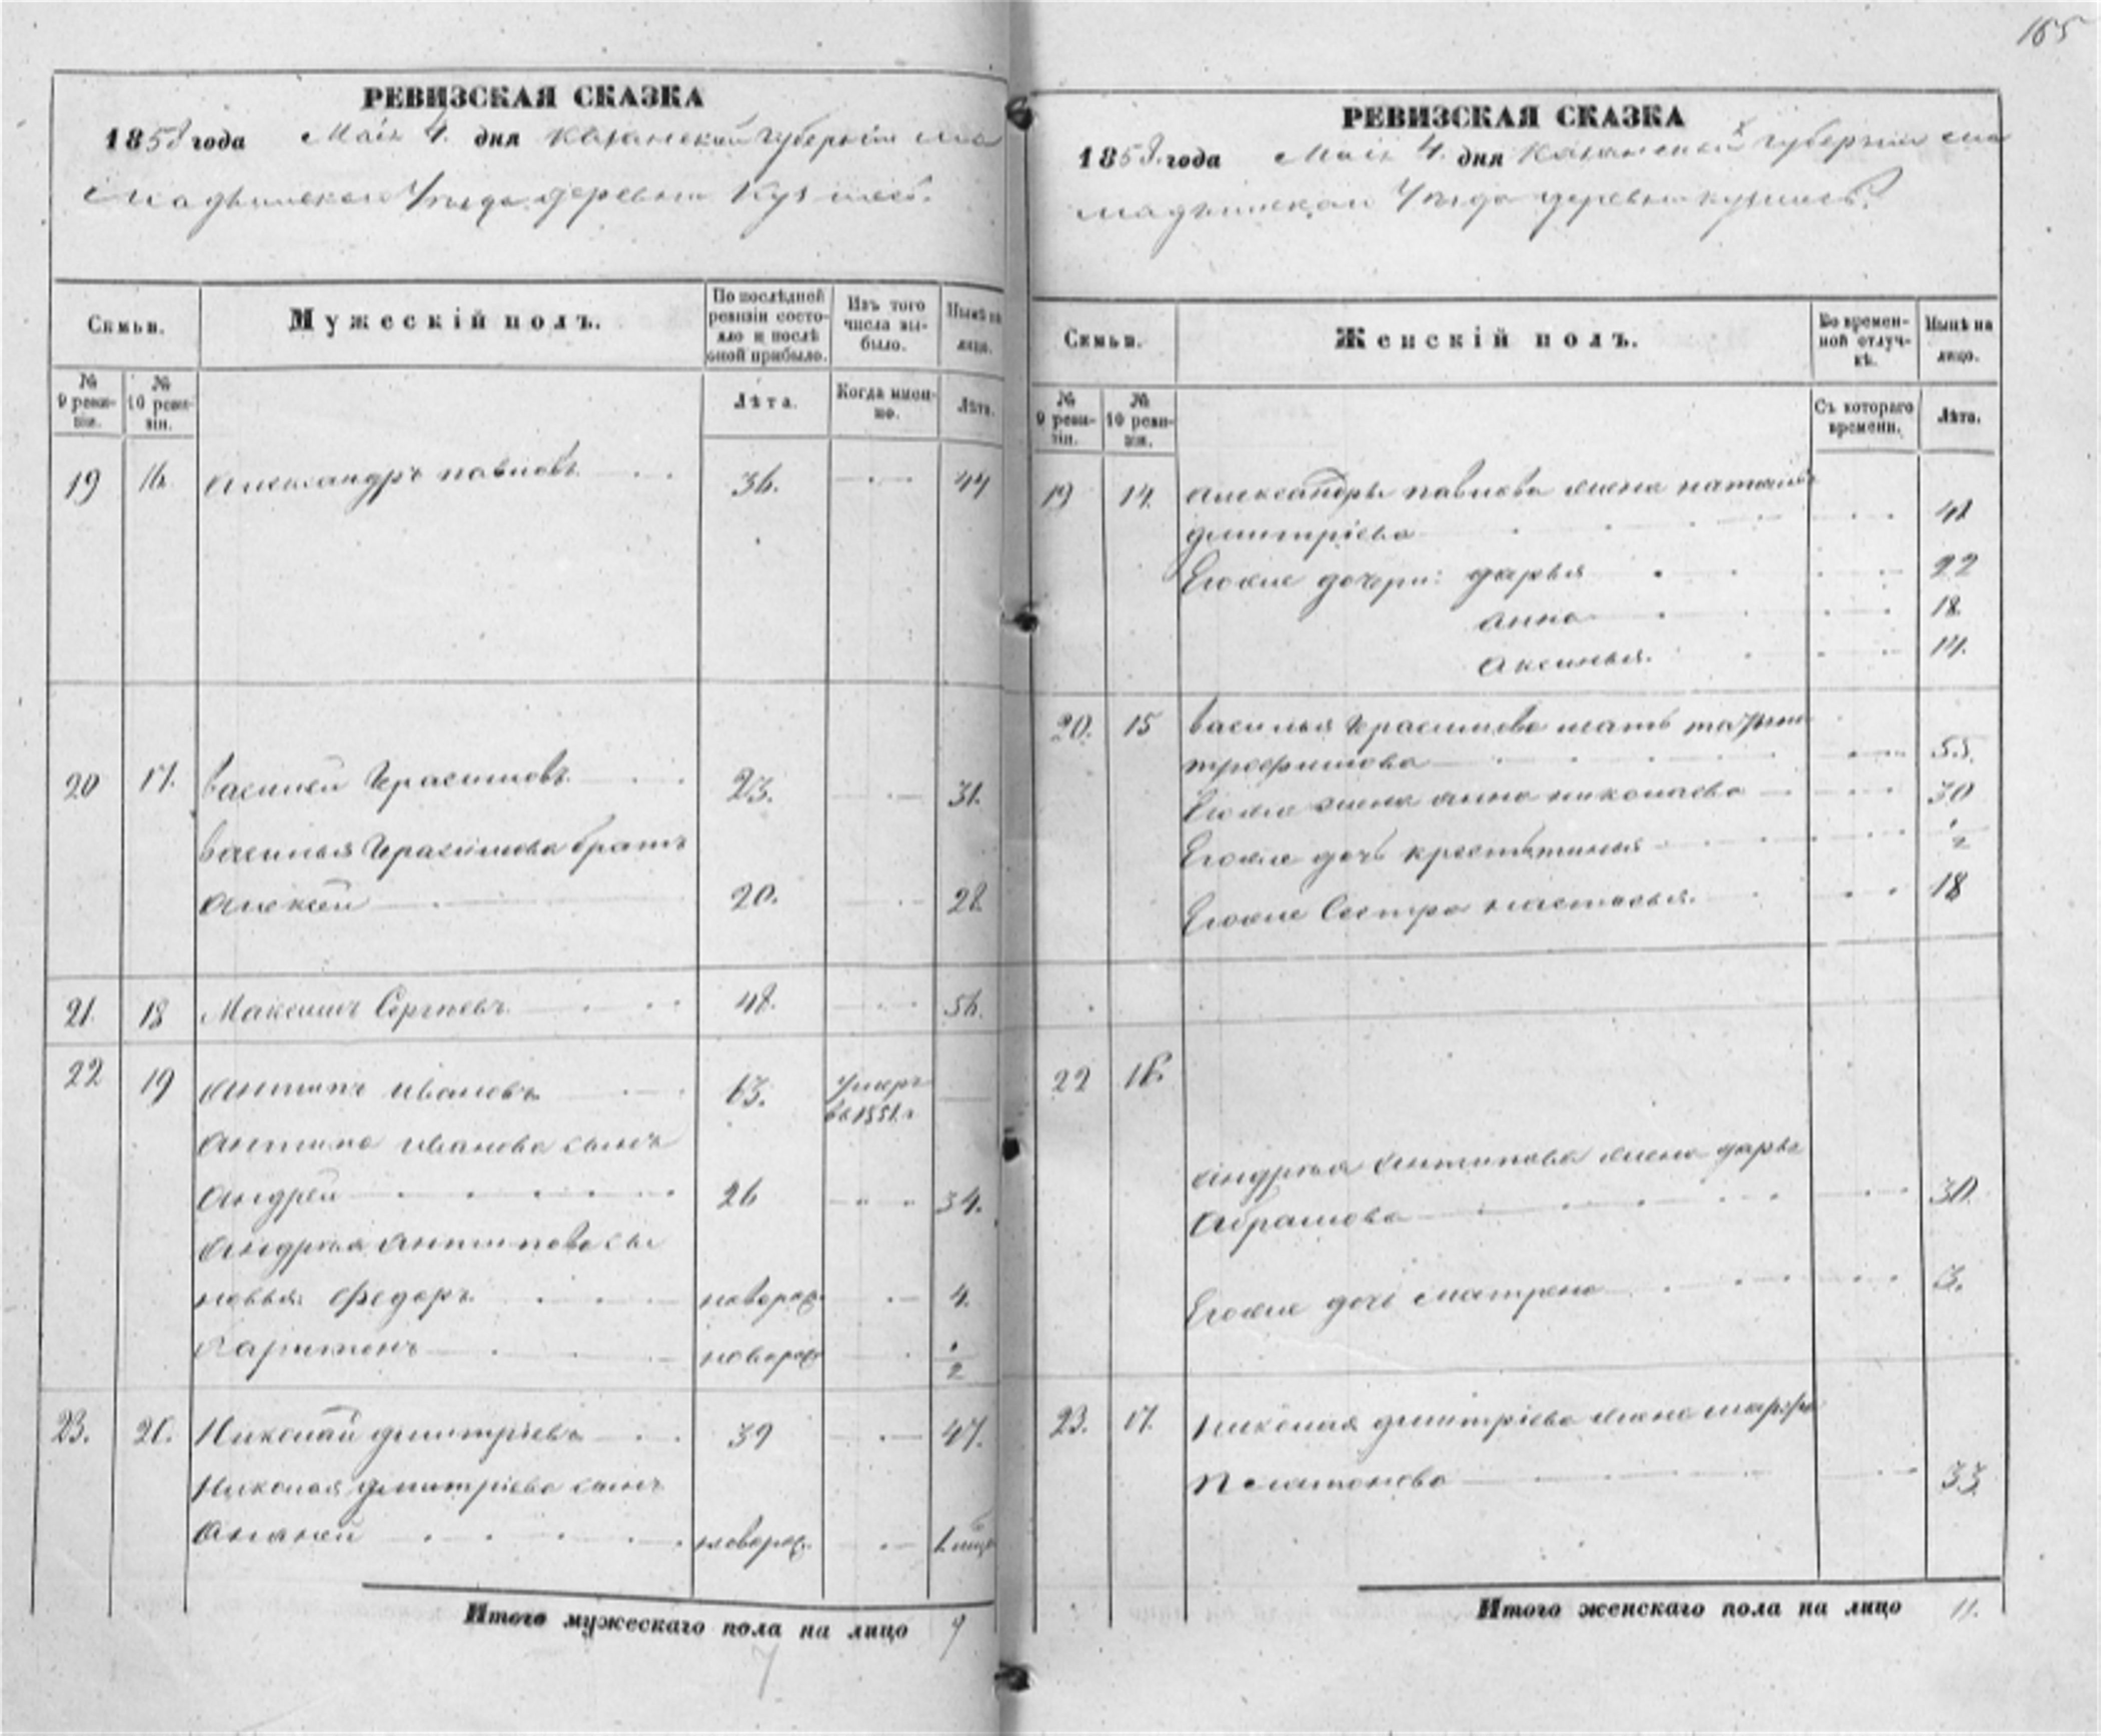 165
РЕВИЗСКАЯ СКАЗКА
1858 года Маія 4. дня Казанской губерніи Ма
мадышскаго Уѣзда деревни
Семьи.
Мужескій полъ.
По послѣдней ревизіи состояло и послѣ оной прибыло.
Изъ того числа выбыло.
Нынѣ на лицо.
№ 9 ревизіи.
№ 10 ревизіи.
Лѣта.
Когда именно.
Лѣта.
19 16 Александръ павловъ 36. 44
20 17. Василей Герасимовъ 23. 31.
Василья Герасимова братъ
Алексей 20. 28
21. 18 Максимъ Сергѣевъ 48. 56.
22 19 Антипъ Ивановъ 63. умеръ
въ 1851. г
Антипа Иванова сынъ
Андрей 26 34.
Андрея Антипова сы
новья: Федоръ новорож. 4.
Харитонъ новорож 1/2
23. 20. Николай дмитріевъ 39 47.
Николая дмитріева сынъ
Ананей новорож. 1 мѣся
Итого мужескаго пола на лицо 9
РЕВИЗСКАЯ СКАЗКА
1858. года Маія 4. дня Казанской губерніи ма
мадышскаго Уѣзда деревни
Семьи.
Женскій полъ.
Во временной отлучкѣ.
Нынѣ на лицо.
№ 9 ревизіи.
№ 10 ревизіи.
Съ котораго времени.
Лѣта.
19 14. Александра павлова жена наталья
дмитріева 42
Егоже дочери: дарья 22
анна 18
Аксинья. 14.
20. 15 Василья Герасимова мать
трофимова 55.
Егоже жена анна николаева 30
Егоже дочь 1/2
Егоже Сестра настасья. 18
22 16.
Андрея Антипова жена дарья
Абрамова 30.
Егоже дочь матрена 3.
23. 17. Николая дмитріева жена марфа
Платонова 33
Итого женскаго пола на лицо 11.